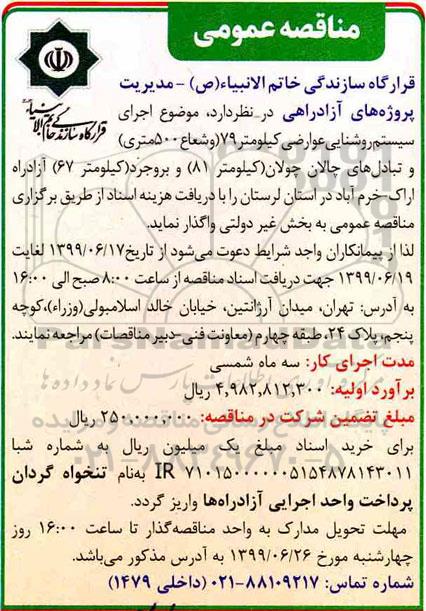 مناقصه عمومی
قرارگاه سازندگی خاتم الانبیاء
قرارگاه سازندگی خاتم الانبیاء(ص) -مدیریت
پروژه‌های آزادراهی در نظردارد، موضوع اجرای
سیستم روشنایی عوارضی کیلومتر۷۹(وشعاع۵۰۰متری)
و تبادل‌های چالان چولان(کیلومتر ۸۱) و بروجرد(کیلومتر ۶۷) آزادراه
اراک-خرم آباد در استان لرستان را با دریافت هزینه اسناد از طریق برگزاری
مناقصه عمومی به بخش غیر دولتی واگذار نماید.
لذا از پیمانکاران واجد شرایط دعوت می‌شود از تاریخ۱۳۹۹/۰۶/۱۷ لغایت
۱۳۹۹/۰۶/۱۹ جهت دریافت اسناد مناقصه از ساعت ۸:۰۰ صبح الی ۱۶:۰۰
به آدرس: تهران، میدان آرژانتین، خیابان خالد اسلامبولی(وزراء)،کوچه
پنجم، پلاک ۲۴، طبقه چهارم (معاونت فنی-دبیر مناقصات) مراجعه نمایند.
مدت اجرای کار: سه ماه شمسی
برآورد اولیه: ۴,۹۸۲,۸۱۲,۳۰۰ ریال
مبلغ تضمین شرکت در مناقصه: ۲۵۰,۰۰۰,۰۰۰ ریال
برای خرید اسناد مبلغ یک میلیون ریال به شماره شبا
IR ۷۱۰۱۵۰۰۰۰۰۰۵۱۵۴۸۷۸۱۴۳۰۱۱ به‌نام تنخواه گردان
پرداخت واحد اجرایی آزادراه‌ها واریز گردد.
مهلت تحویل مدارک به واحد مناقصه‌گذار تا ساعت ۱۶:۰۰ روز
چهارشنبه مورخ ۱۳۹۹/۰۶/۲۶ به آدرس مذکور می‌باشد.
شماره تماس: ۸۸۱۰۹۲۱۷-۰۲۱ (داخلی ۱۴۷۹)